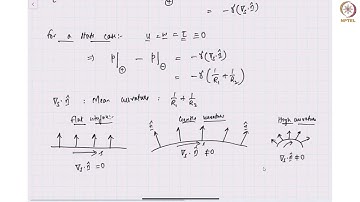 = -γ(∇s·n̂)
For a static case: u = w = τ ≡ 0
⇒ p|⊕ - p|⊖ = -γ(∇s·n̂)
= -γ(1/R1 + 1/R2)
∇s·n̂ : Mean curvature : 1/R1 + 1/R2
Flat interface:- Gentle curvature High curvature
n̂ n̂
∇s·n̂ = 0 ∇s·n̂ ≠ 0 ∇s·n̂ ≠ 0
NPTEL